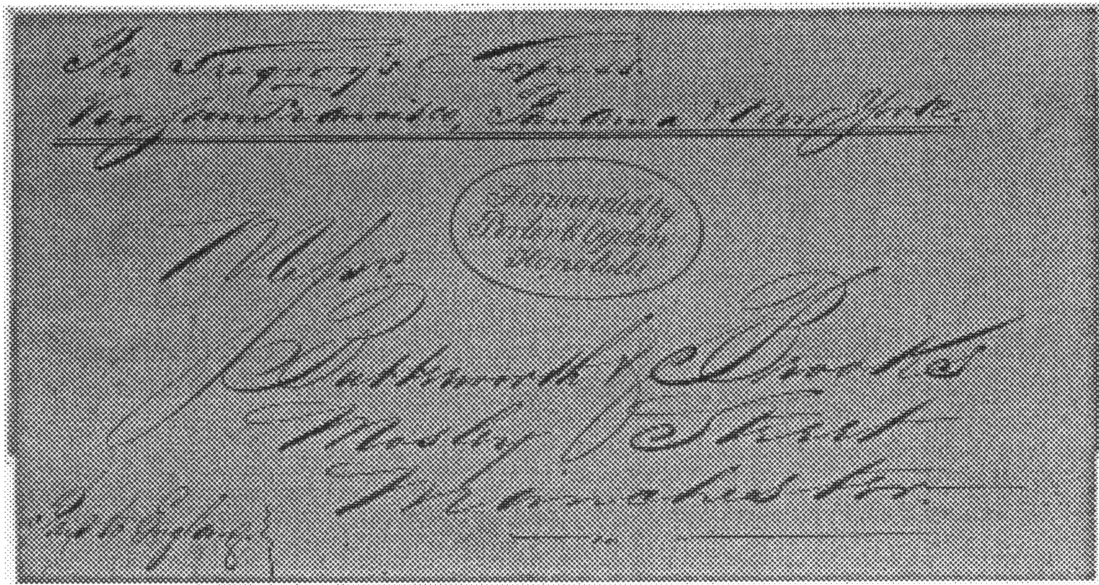 Per Gregory's Express.
Via San Francisco, Panama & New York.
Forwarded by
Porter & Ogden
Honolulu
Messrs.
Butterworth & Brooks
Mosley Street
Manchester.